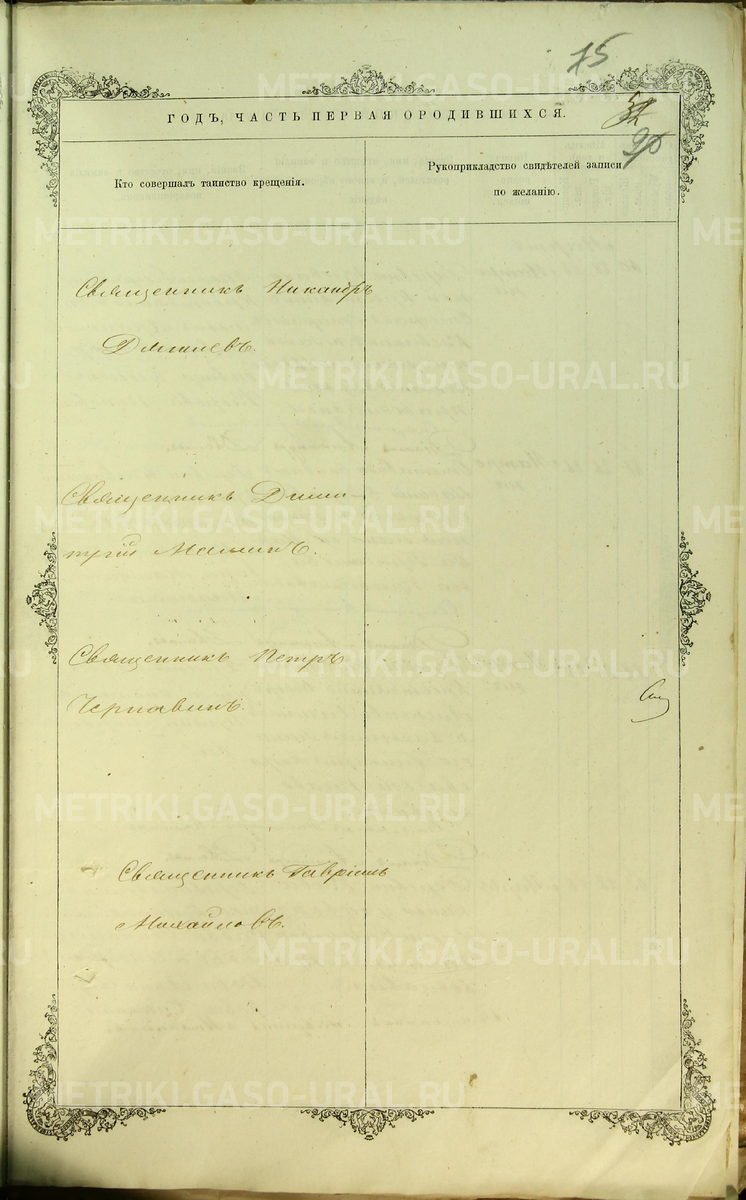 75
ГОДЪ, ЧАСТЬ ПЕРВАЯ О РОДИВШИХСЯ.
Кто совершалъ таинство крещенія.
Рукоприкладство свидѣтелей записи
по желанію.
Священникъ Никандръ
Священникъ Дими
трій Маминъ.
Священникъ Петръ
Чернавинъ.
Священникъ Гавріилъ
Михайловъ.
METRIKI.GASO-URAL.RU